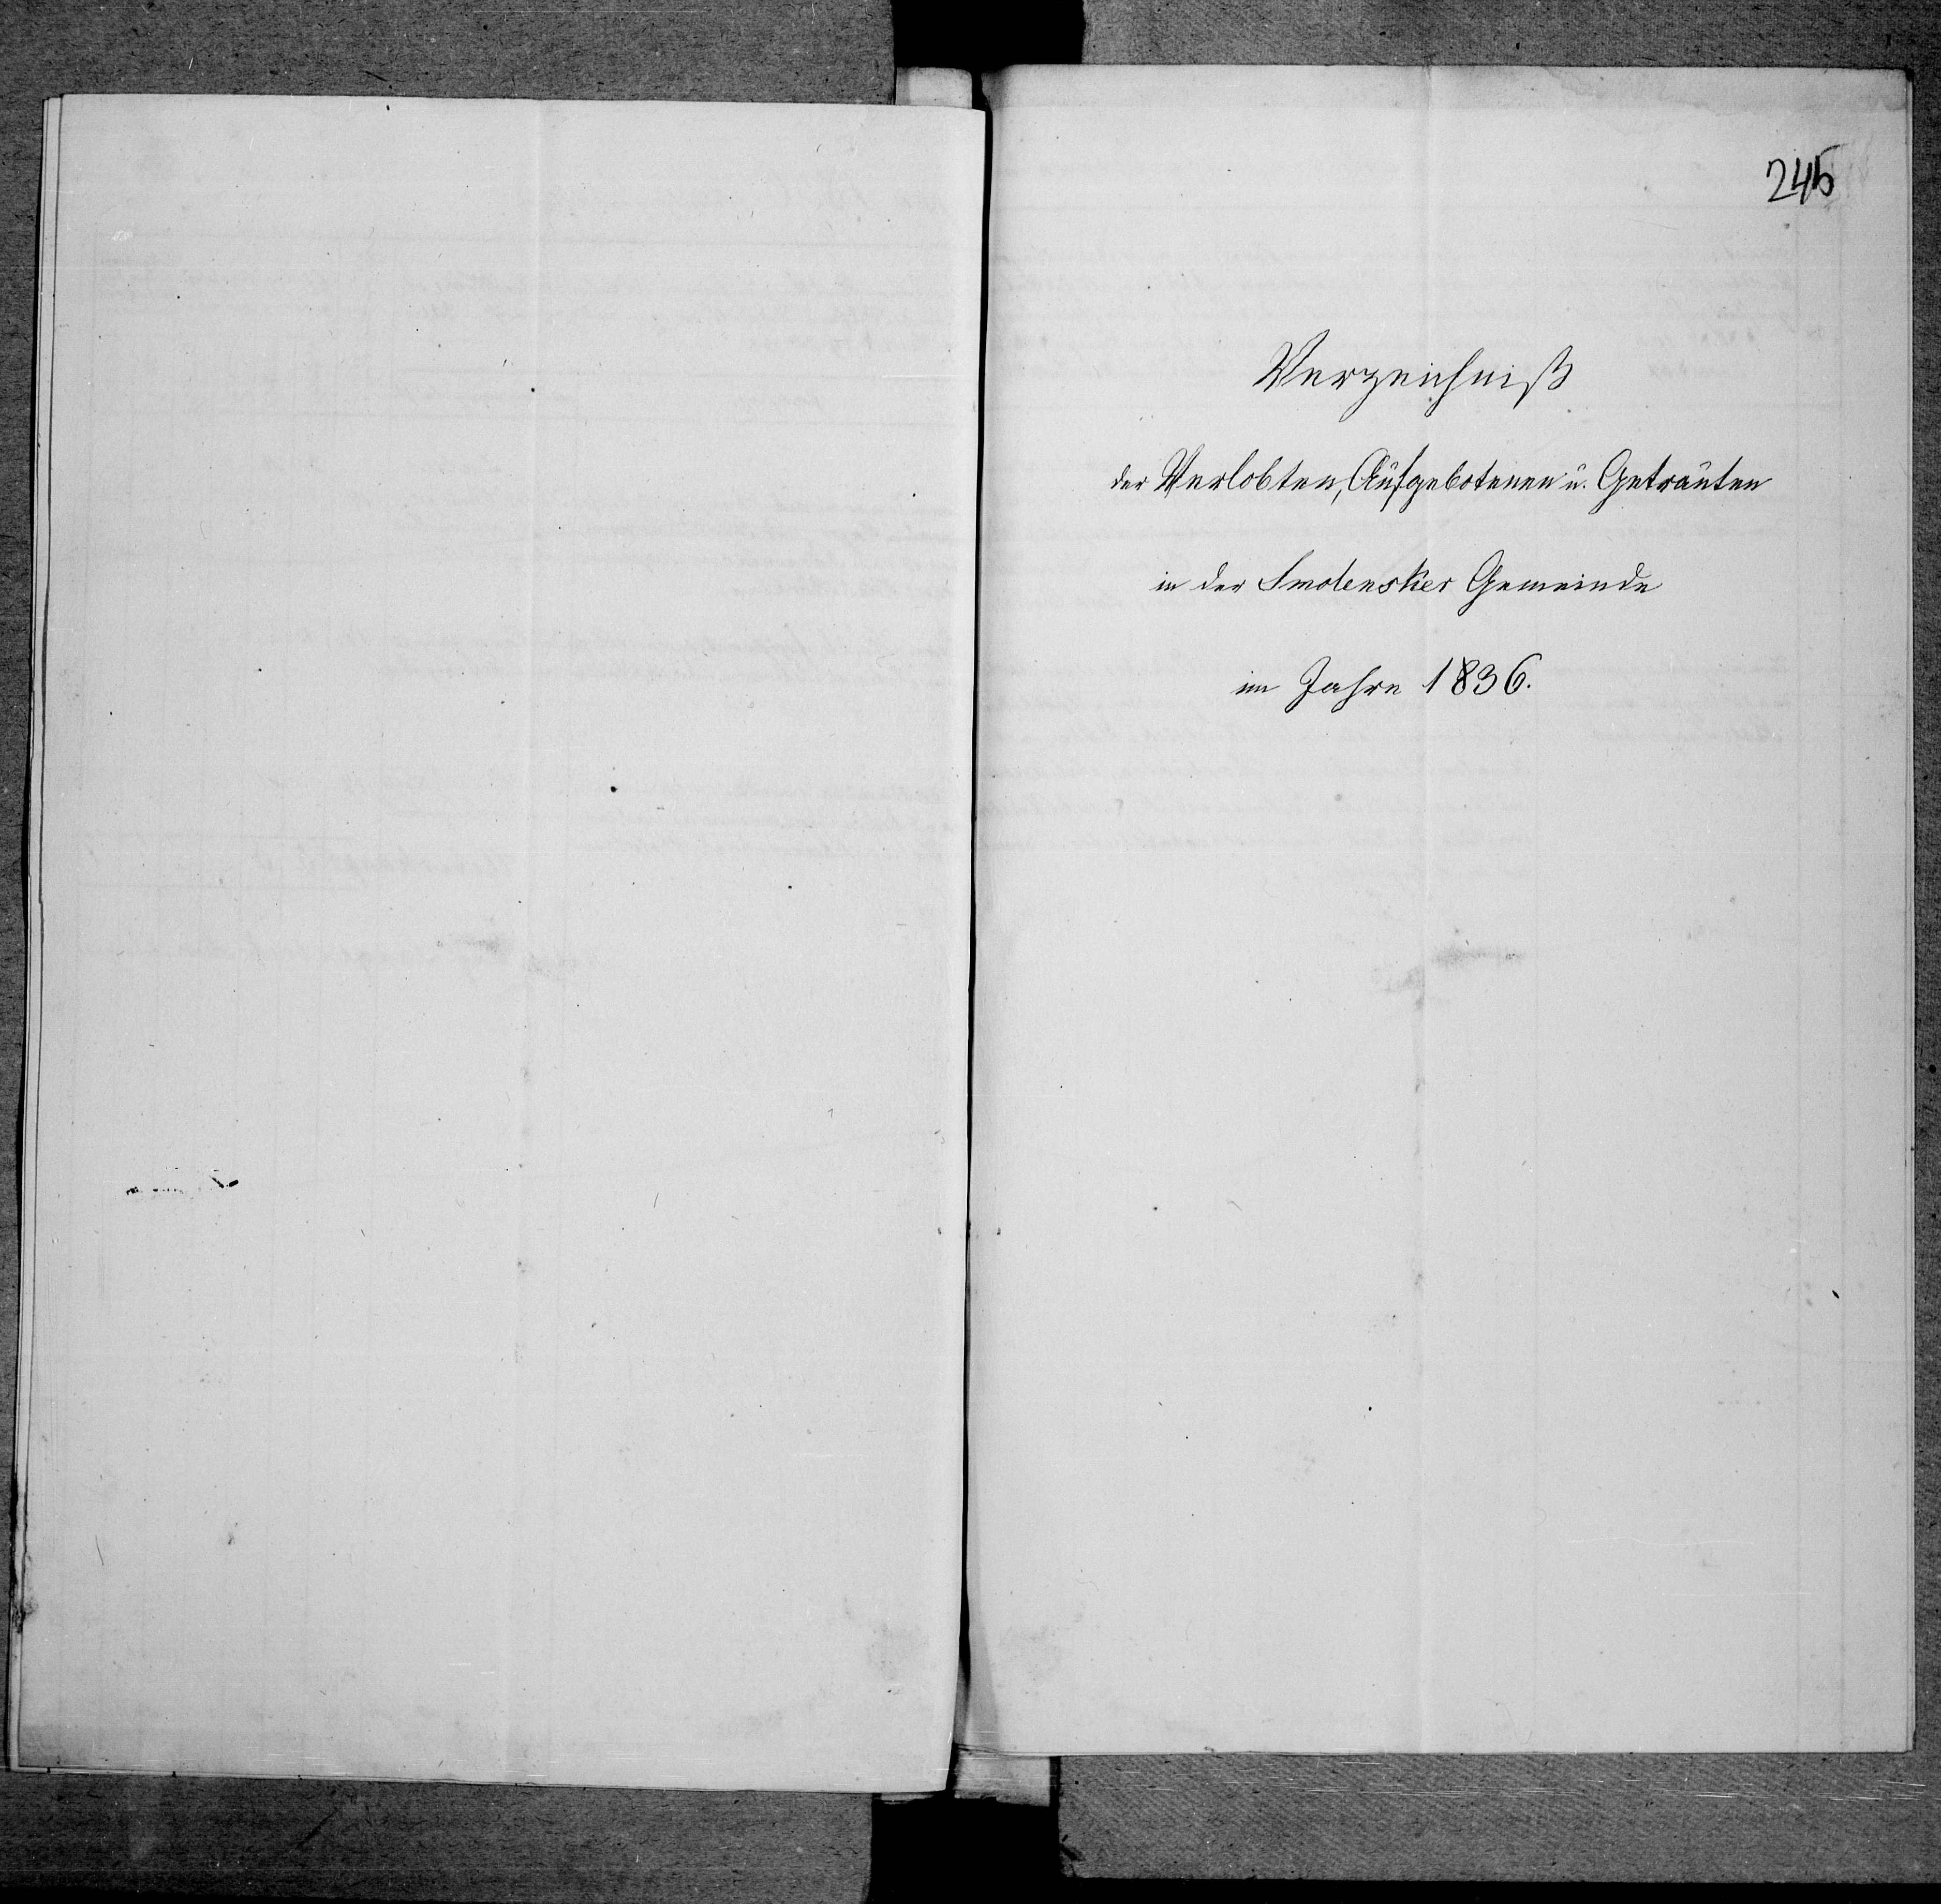 245
Verzeichniß
der Verlobten, Aufgebotenen u. Getrauten
in der Smolensker Gemeinde
im Jahre 1836.